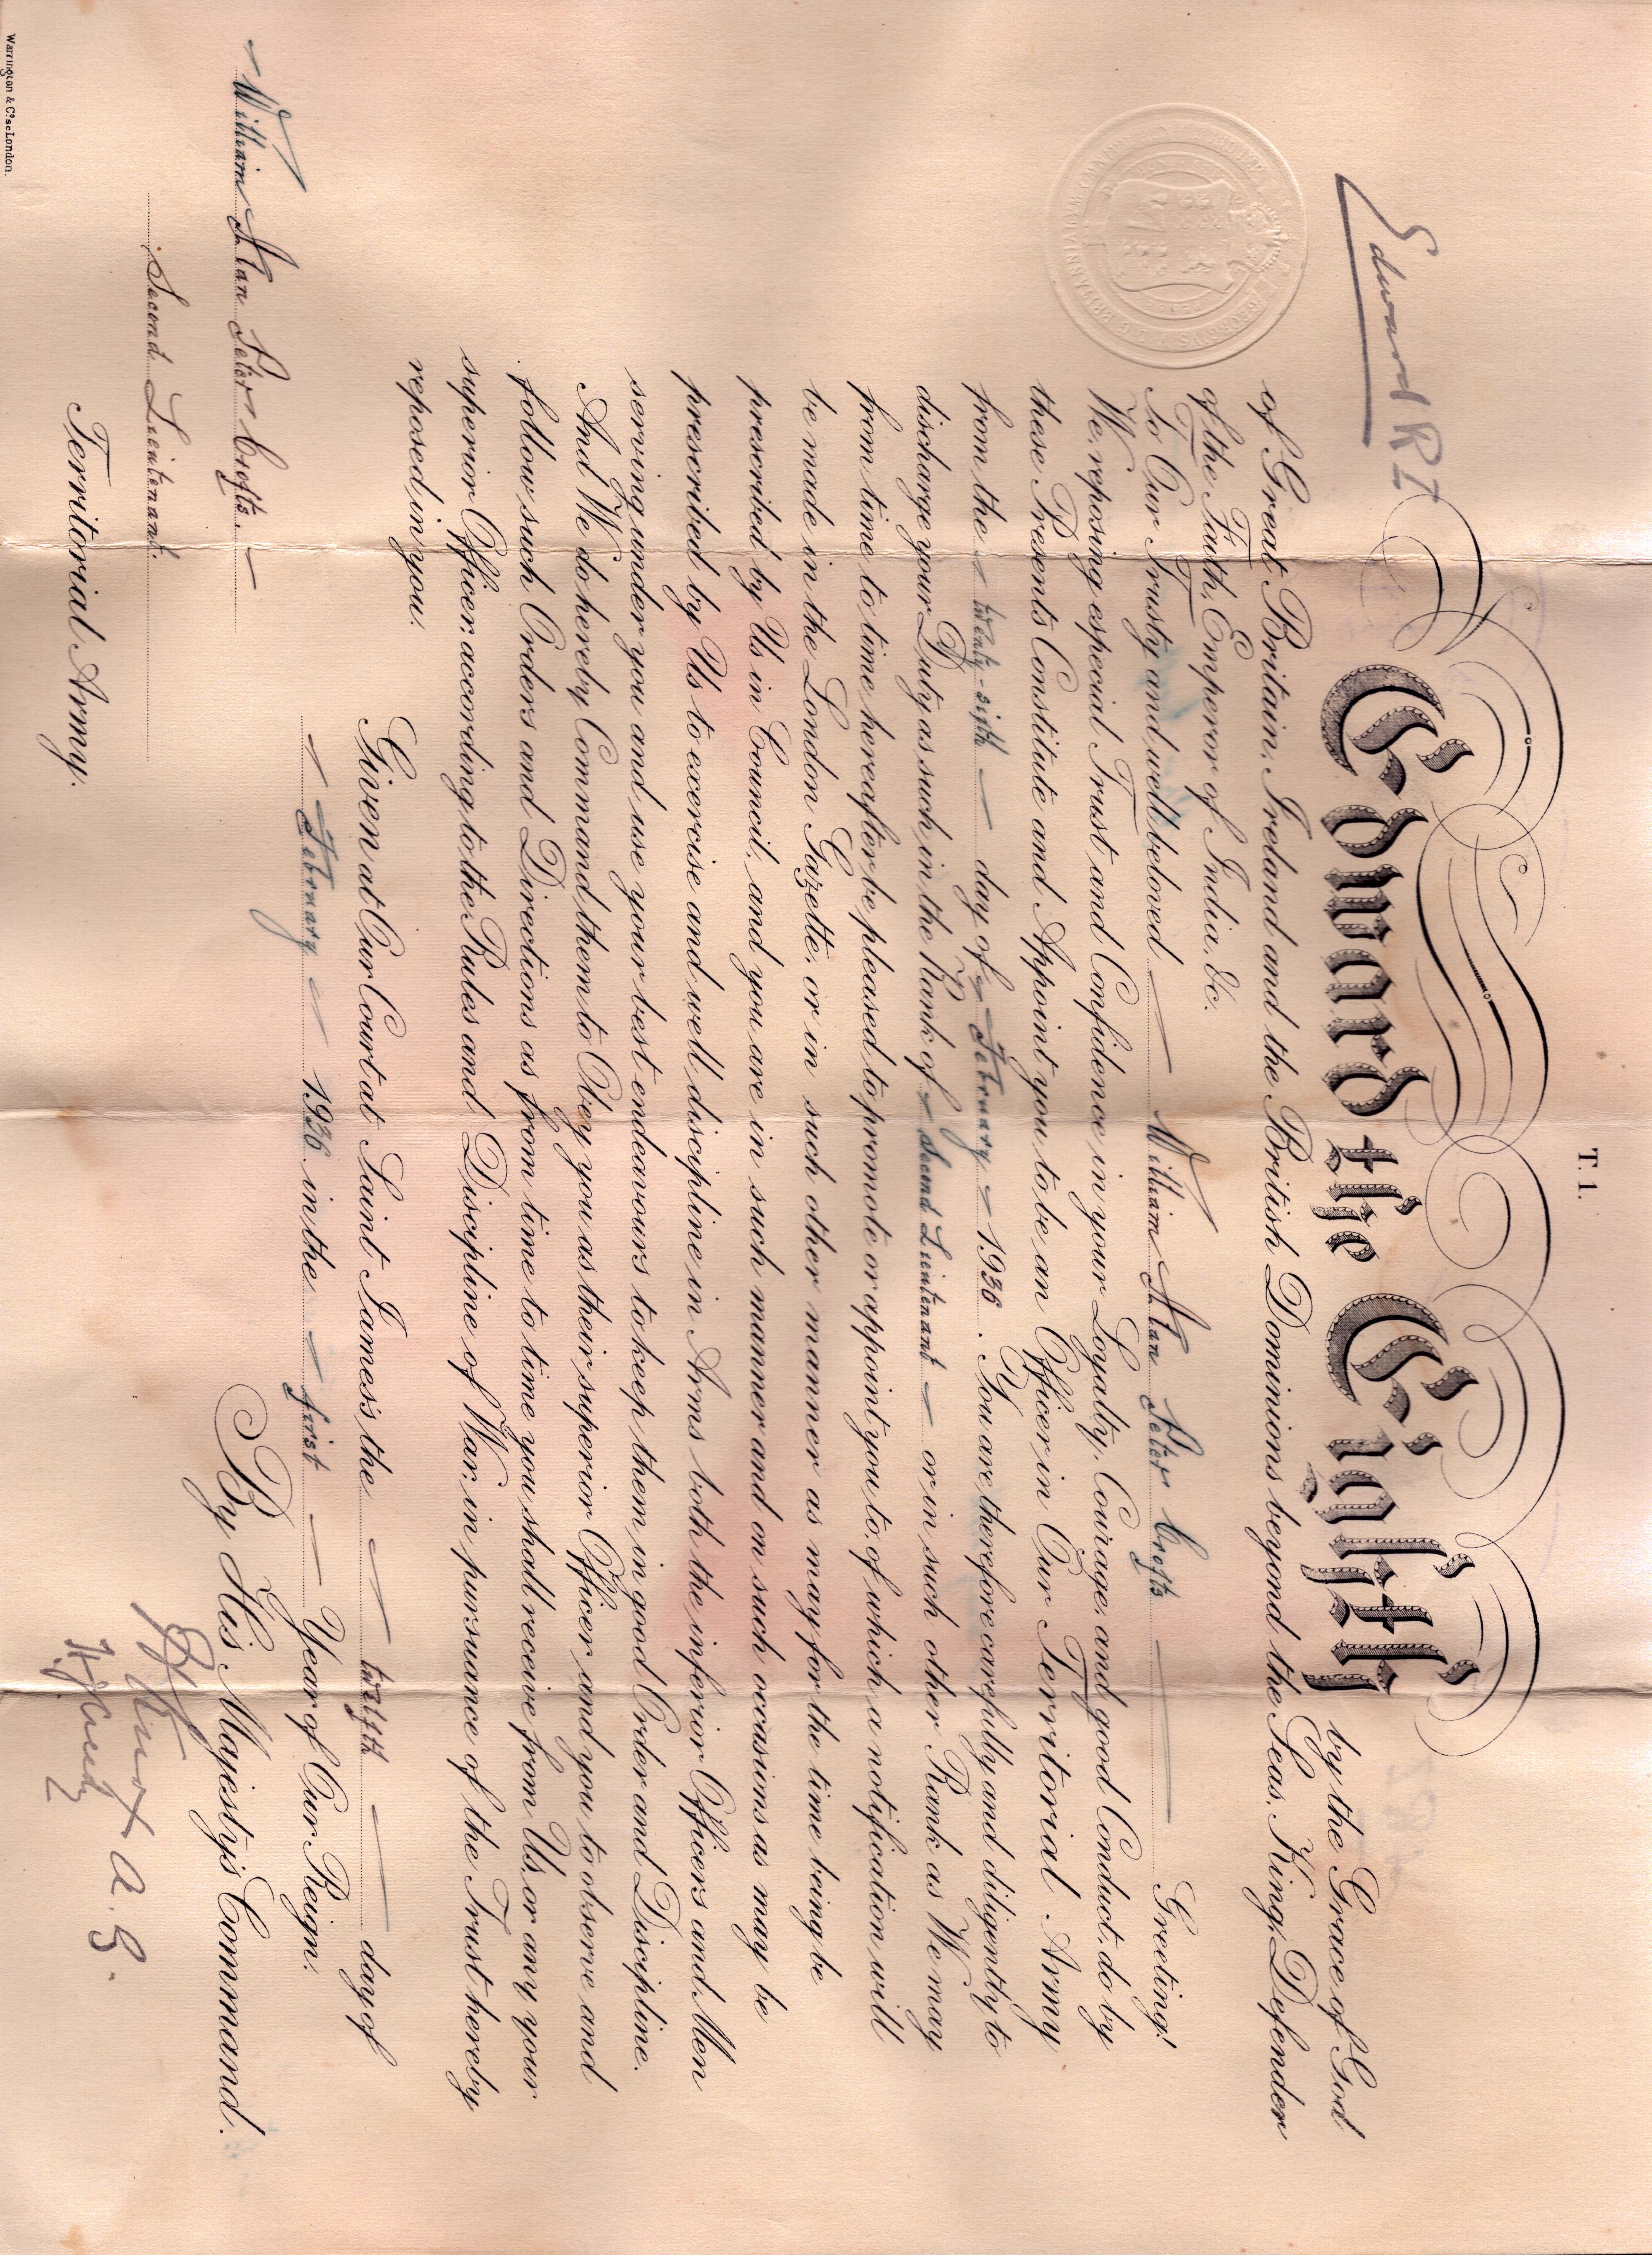 T. 1.
Edward R I
Edward the Eighth by the Grace of God
of Great Britain, Ireland and the British Dominions beyond the Seas, King, Defender
of the Faith, Emperor of India, &c.
To Our Trusty and well beloved William Alan Peter Crofts Greeting!
We, reposing especial Trust and Confidence in your Loyalty, Courage, and good Conduct, do by
these Presents Constitute and Appoint you to be an Officer in Our Territorial Army
from the twenty-sixth day of February 1936. You are therefore carefully and diligently to
discharge your Duty as such in the Rank of Second Lieutenant or in such other Rank as We may
from time to time hereafter be pleased to promote or appoint you to, of which a notification will
be made in the London Gazette, or in such other manner as may for the time being be
prescribed by Us in Council, and you are in such manner and on such occasions as may be
prescribed by Us to exercise and well discipline in Arms both the inferior Officers and Men
serving under you and use your best endeavours to keep them in good Order and Discipline.
And We do hereby Command them to Obey you as their superior Officer, and you to observe and
follow such Orders and Directions as from time to time you shall receive from Us, or any your
superior Officer, according to the Rules and Discipline of War, in pursuance of the Trust hereby
reposed in you.
Given at Our Court at Saint James's the twelfth day of
February 1936 in the first Year of Our Reign.
By His Majesty's Command.
William Alan Peter Crofts.
Second Lieutenant.
Territorial Army.
Knox A.G.
Warrington & Co. sc London.